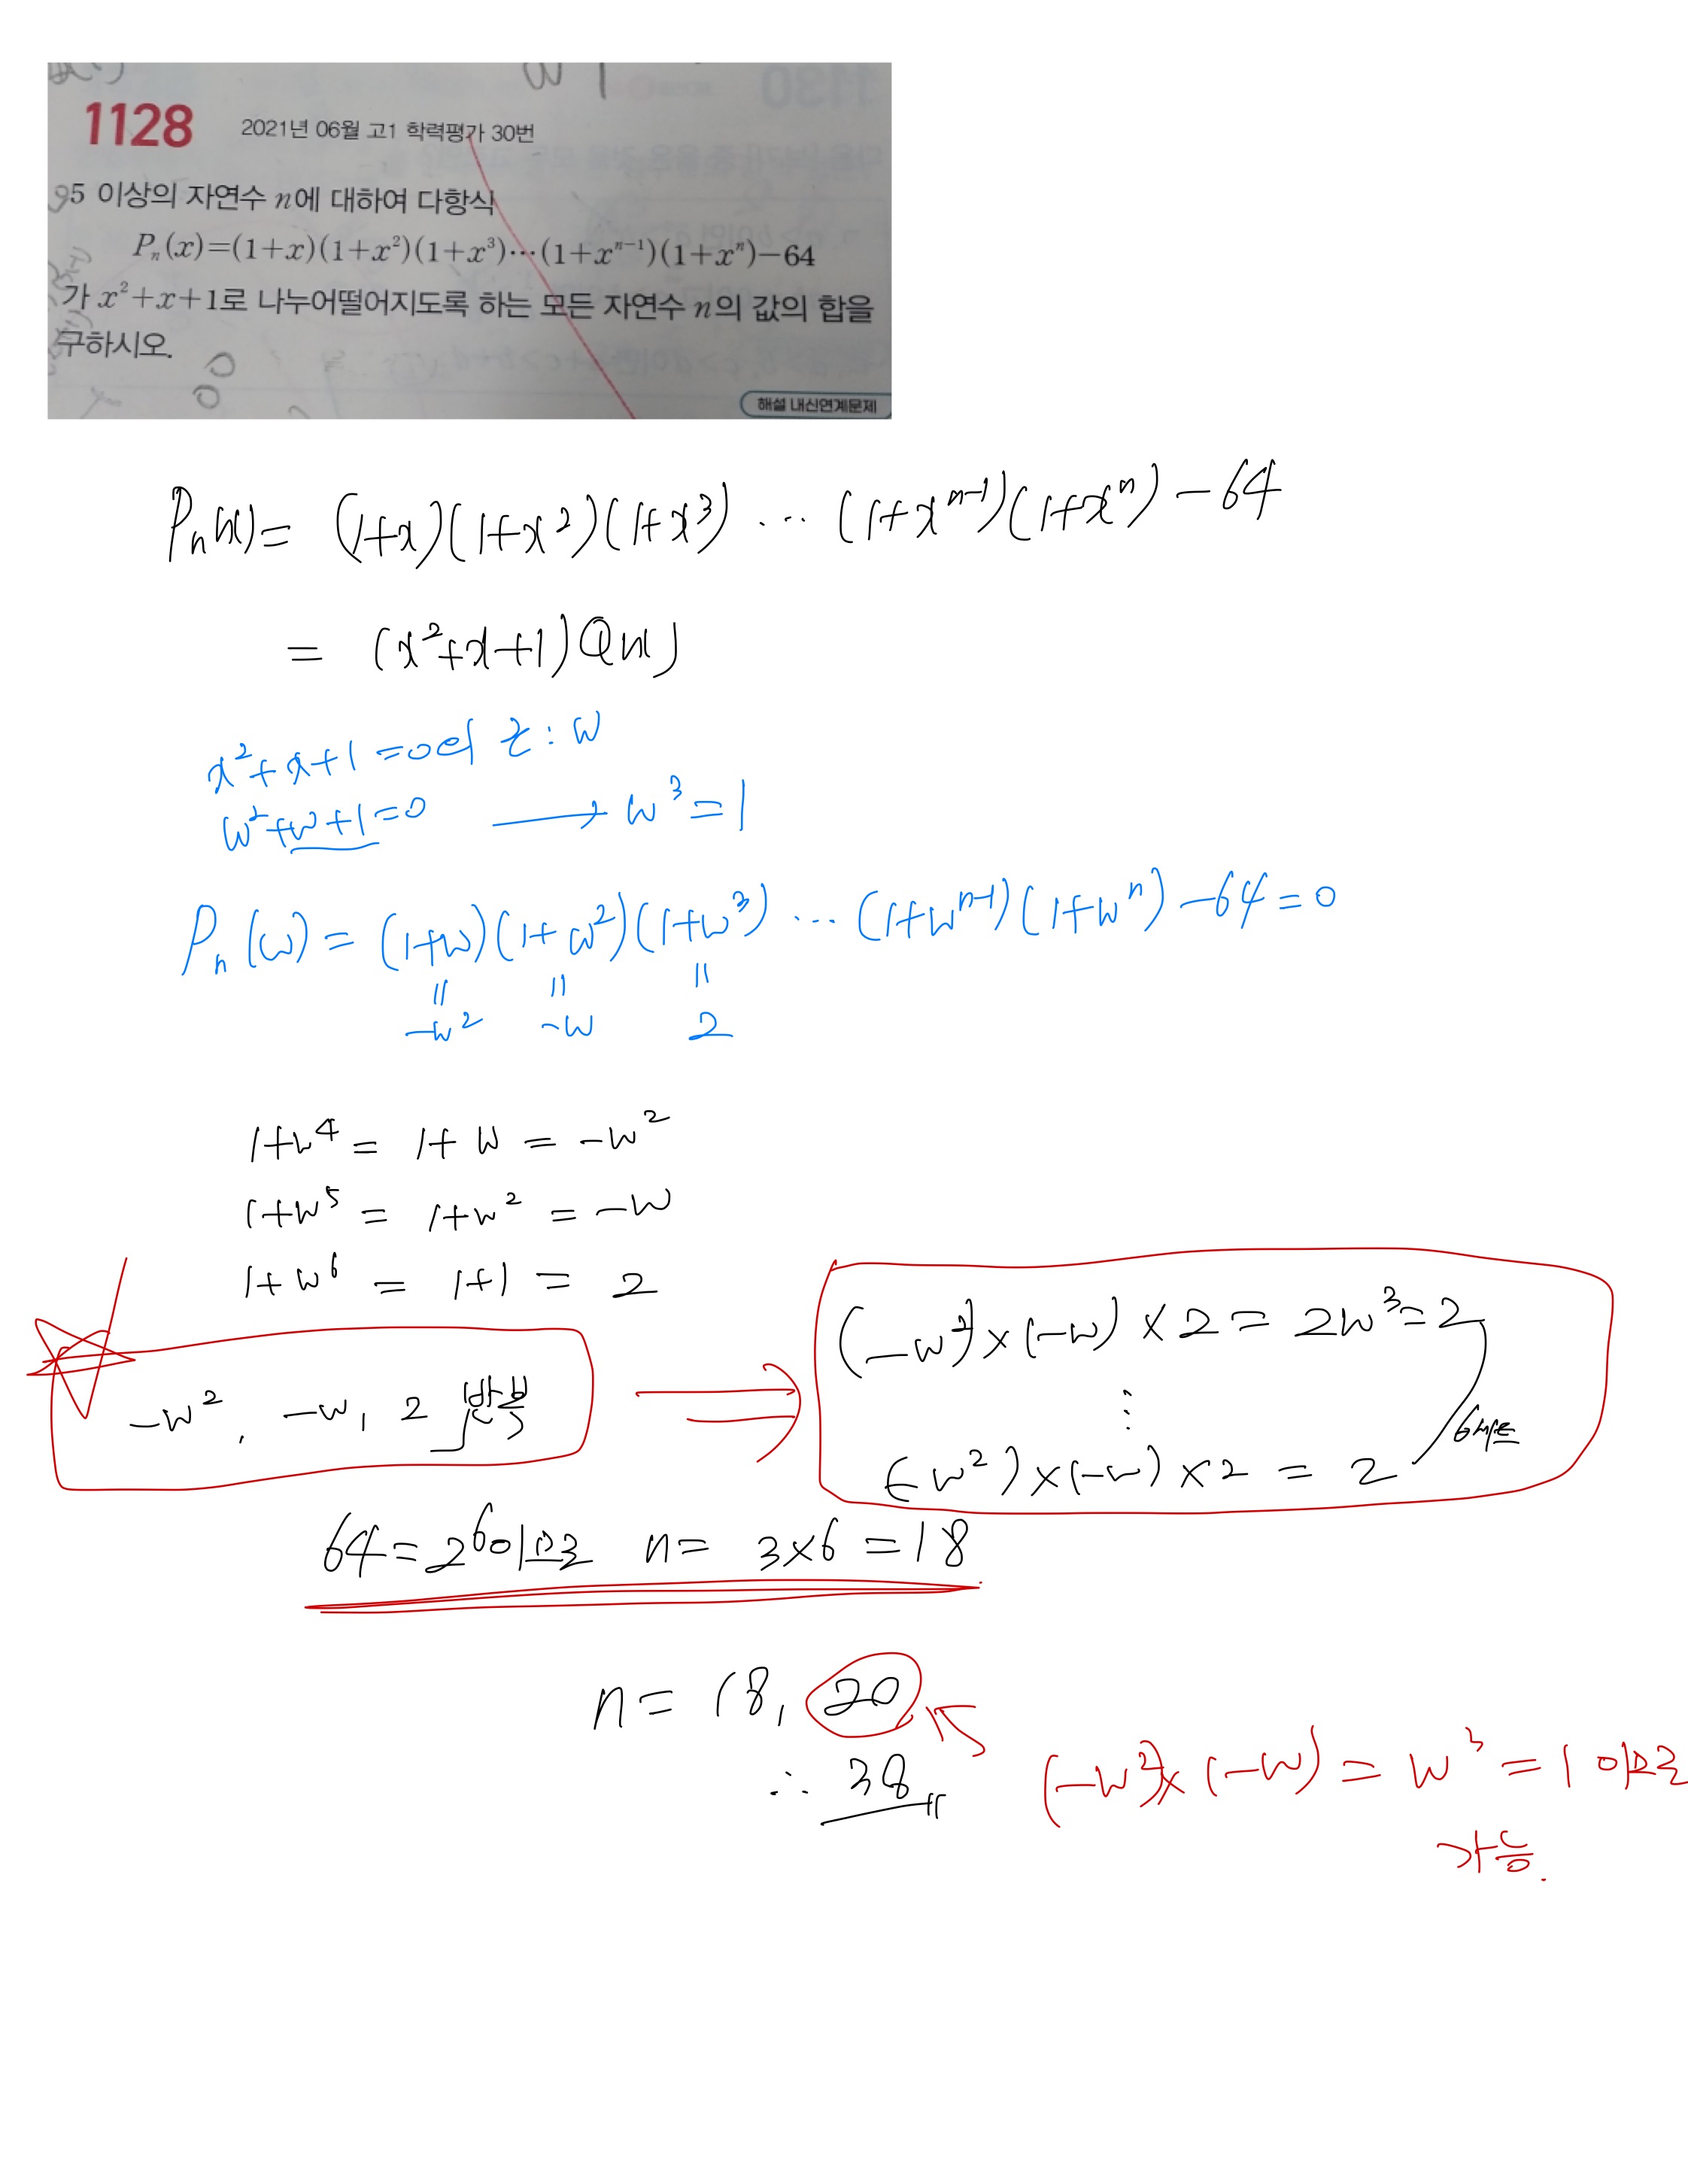 1128 2021년 06월 고1 학력평가 30번
5 이상의 자연수 n에 대하여 다항식
Pₙ(x)=(1+x)(1+x²)(1+x³)⋯(1+xⁿ⁻¹)(1+xⁿ)−64
가 x²+x+1로 나누어떨어지도록 하는 모든 자연수 n의 값의 합을
구하시오.
해설 내신연계문제
Pₙ(x)= (1+x)(1+x²)(1+x³) ⋯ (1+xⁿ⁻¹)(1+xⁿ)−64
= (x²+x+1)Q(x)
x²+x+1=0의 근: w
w²+w+1=0 → w³=1
Pₙ(w) = (1+w)(1+w²)(1+w³) ⋯ (1+wⁿ⁻¹)(1+wⁿ)−64=0
= = =
−w² −w 2
1+w⁴ = 1+w = −w²
1+w⁵ = 1+w² = −w
1+w⁶ = 1+1 = 2
−w², −w, 2 반복
⇒
(−w²)×(−w)×2= 2w³=2
⋮
(−w²)×(−w)×2 = 2
6세트
64=2⁶이므로 n= 3×6=18
n= 18, 20
∴ 38
(−w²)×(−w) = w³=1 이므로
가능.